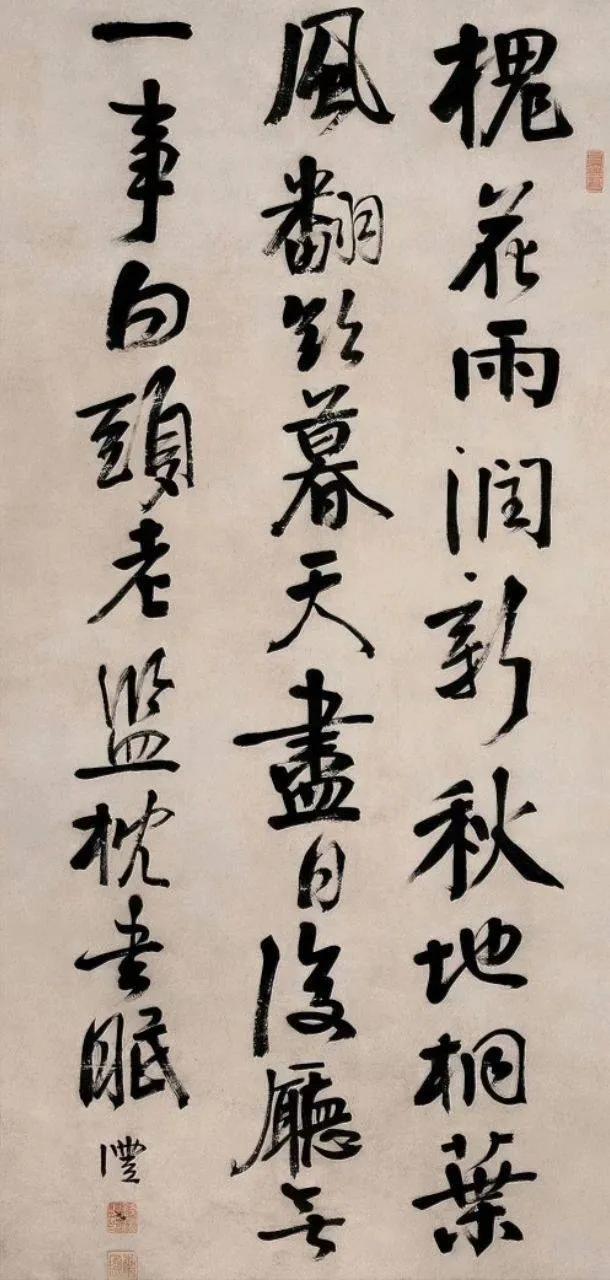 槐花雨潤新秋地桐葉
風翻欲暮天盡日後廳無
一事白頭老監枕書眠
澧